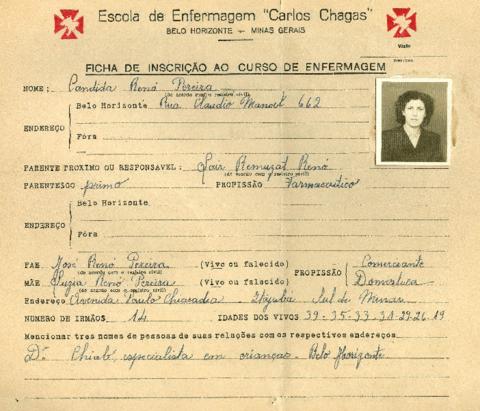 Escola de Enfermagem "Carlos Chagas"
BELO HORIZONTE - MINAS GERAIS
Visto
FICHA DE INSCRIÇÃO AO CURSO DE ENFERMAGEM
NOME: Candida Renó Pereira
(de acordo com o registro civil)
ENDEREÇO
Belo Horizonte Rua Claudio Manoel 662
Fóra
PARENTE PROXIMO OU RESPONSAVEL: Jair Remuzat Renó
(de acordo com o registro civil)
PARENTESCO primo PROFISSÃO Farmaceutico
ENDEREÇO
Belo Horizonte
Fóra
PAE José Renó Pereira (Vivo ou falecido) PROFISSÃO Comerciante
(de acordo com o registro civil)
MÃE Luzia Renó Pereira (Vivo ou falecido) Domestica
(de acordo com o registro civil)
Endereço Avenida Paulo Chiaradia Itajubá Sul de Minas
NUMERO DE IRMÃOS 14 IDADES DOS VIVOS 39-35-33 31-29-26-19
Mencionar tres nomes de pessoas de suas relações com os respectivos endereços
Dr. especialista em crianças - Belo Horizonte